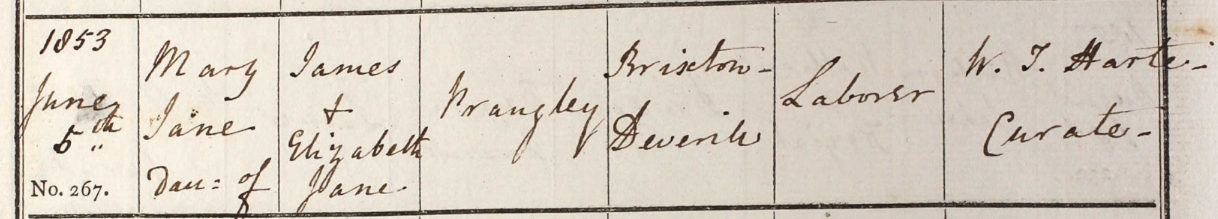 1853
June
5th
No. 267.
Mary
Jane
Dau= of
James
+
Elizabeth
Jane
Prangley
Brixton-
Deverill
Laborer
W. T. Harte-
Curate-